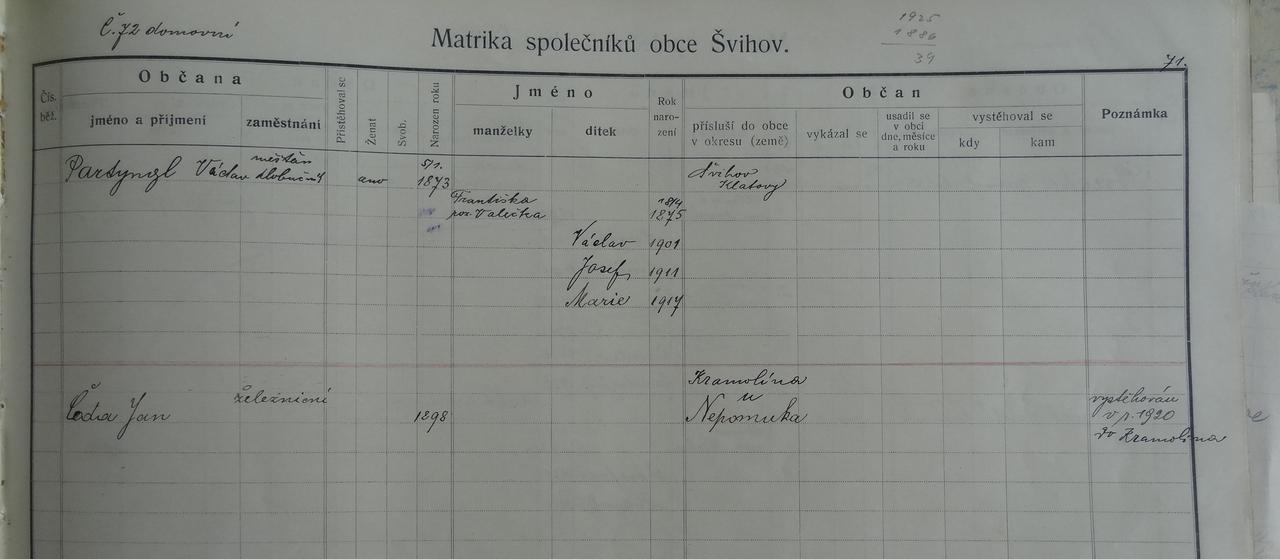 Č. 72 domovní
1925
1886
39
Matrika společníků obce Švihov.
71.
Čís. běž.
Občana
jméno a příjmení
zaměstnání
Přistěhoval se
Ženat
Svob.
Narozen roku
Jméno
manželky
dítek
Rok
naro-
zení
Občan
přísluší do obce
v okresu (země)
vykázal se
usadil se
v obci
dne, měsíce
a roku
vystěhoval se
kdy
kam
Poznámka
Partyngl Václav
měšťan
ano
5/1.
1873
Švihov
Klatovy
Františka
roz. Valečka
18/4
1875
Václav 1901
Josef 1911
Marie 1917
Čada Jan
železniční
1898
Kramolína
u
Nepomuka
vystěhován
v r. 1920
do Kramolína